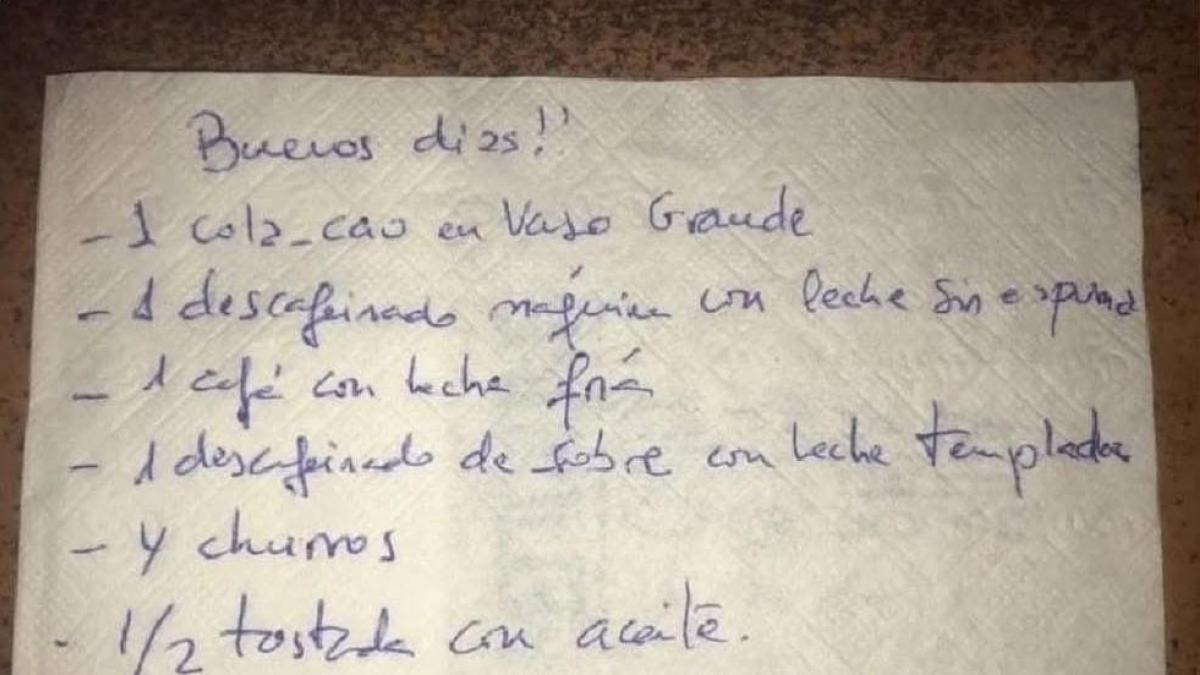 Buenos dias!!
- 1 cola-cao en Vaso Grande
- 1 descafeinado máquina con leche sin espuma
- 1 café con leche fría
- 1 descafeinado de sobre con leche templada
- 4 churros
- 1/2 tostada con aceite.